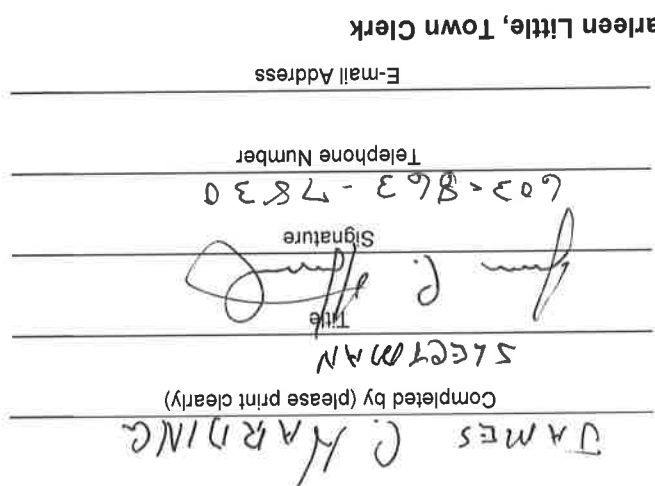 JAMES C. HARDING
Completed by (please print clearly)
SLECTMAN
Title
James C. Harding
Signature
603-863-7830
Telephone Number
E-mail Address
arleen Little, Town Clerk